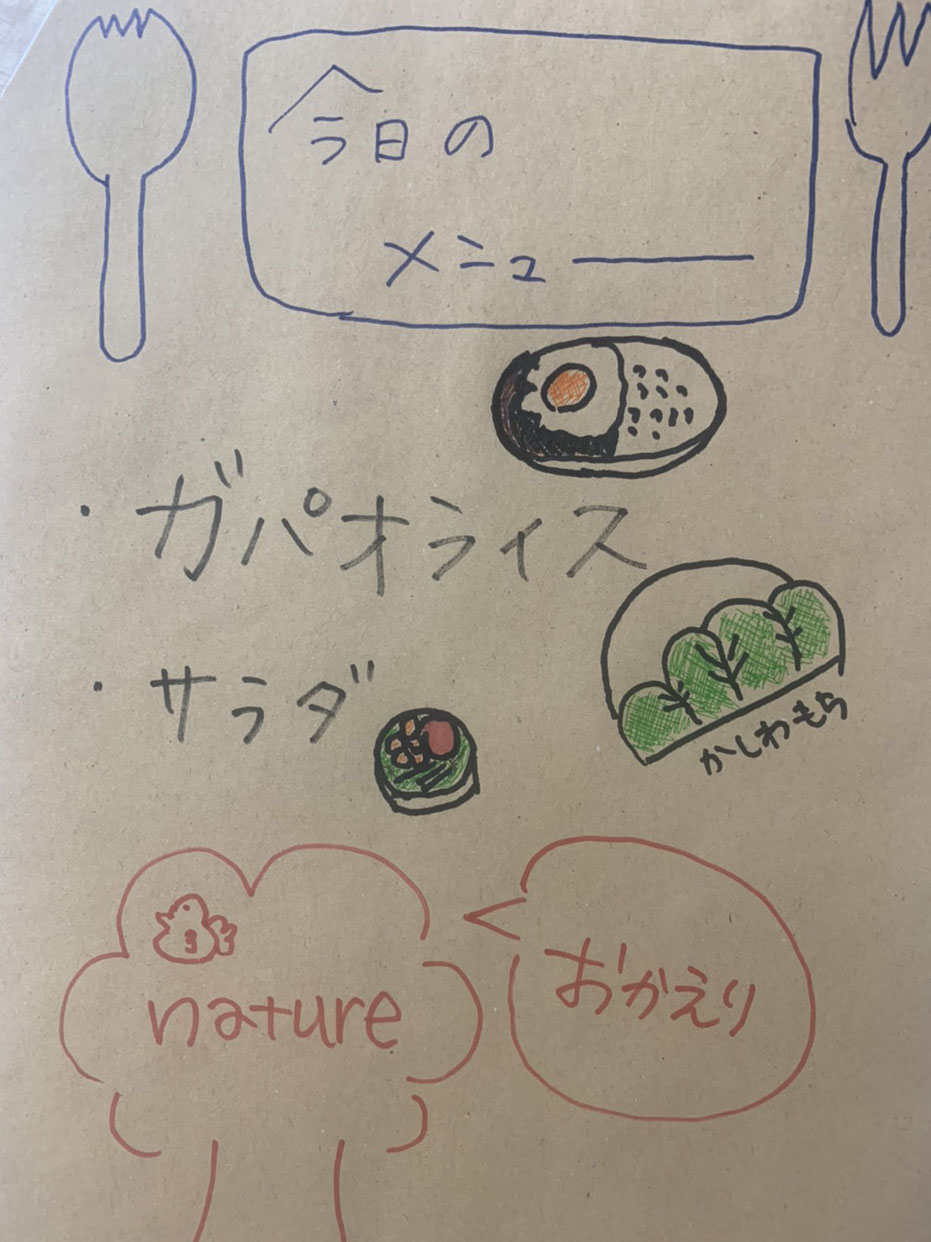 今日の
メニュー
・ガパオライス
・サラダ
かしわもち
nature
おかえり